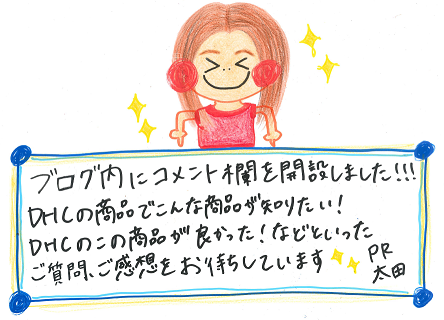 ブログ内にコメント欄を開設しました!!!
DHCの商品でこんな商品が知りたい!
DHCのこの商品が良かった!などといった
ご質問、ご感想をお待ちしています
PR
太田